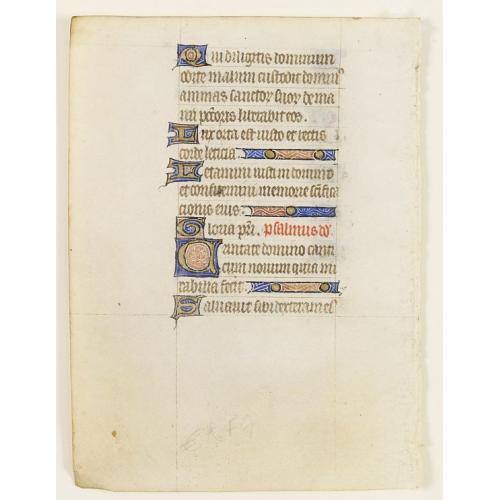 Qui diligitis dominum
odite malum custodit domin9
animas sanctorum suorum de ma
nu pctoris liberabit eos.
Lux orta est iusto et rectis
corde leticia.
Letamini iusti in domino
et confitemini memorie scifica
cionis eius.
Gloria pri. psalmus dd.
Cantate domino canti
cum nouum quia mi
rabilia fecit.
Saluauit sibi dextera eius